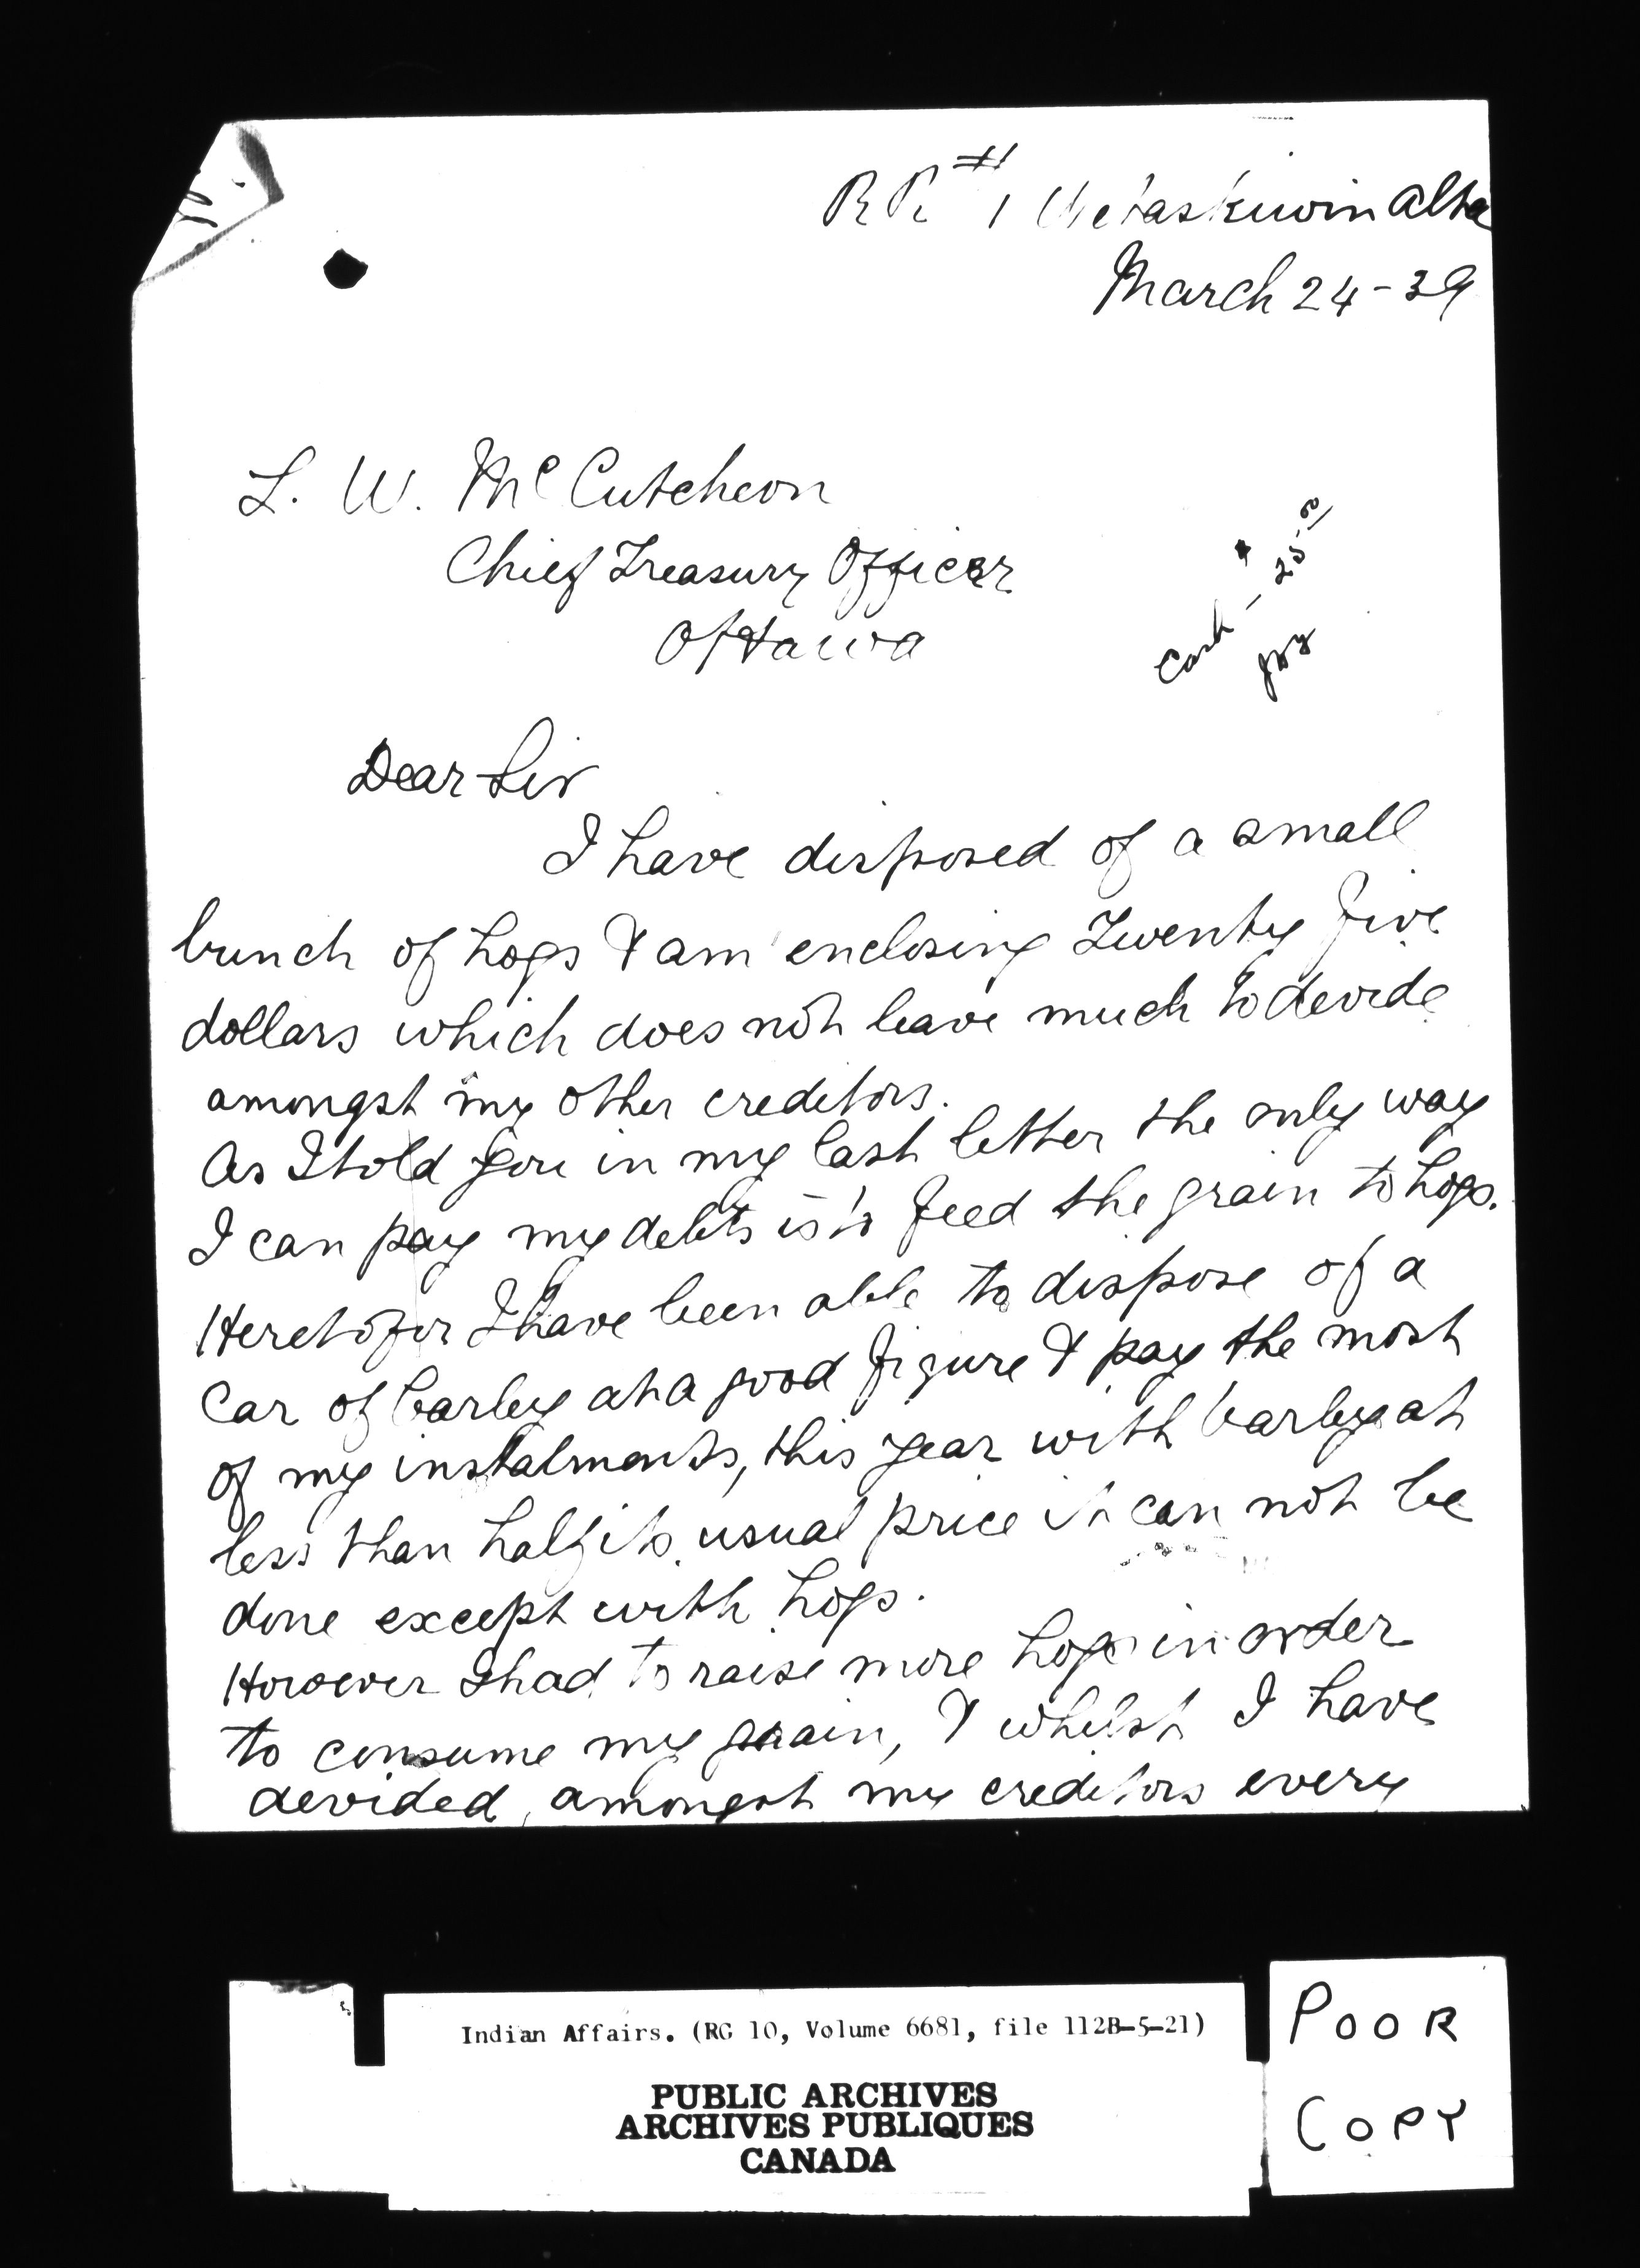 RR #1 Wetaskiwin Alta
March 24-39
L. W. McCutcheon
Chief Treasury Officer
Ottawa
Cash - $25.00
Dear Sir
I have disposed of a small
bunch of hogs & am enclosing Twenty five
dollars which does not leave much to devide
amongst my other creditors.
As I told you in my last letter the only way
I can pay my debts is to feed the grain to hogs.
Heretofor I have been able to dispose of a
Car of barley at a good figure & pay the most
of my instalments, this year with barley at
less than half its usual price it can not be
done except with hogs.
However I had to raise more hogs in order
to consume my grain, & whilst I have
devided amongst my creditors every
Indian Affairs. (RG 10, Volume 6681, file 112B-5-21)
PUBLIC ARCHIVES
ARCHIVES PUBLIQUES
CANADA
POOR
COPY